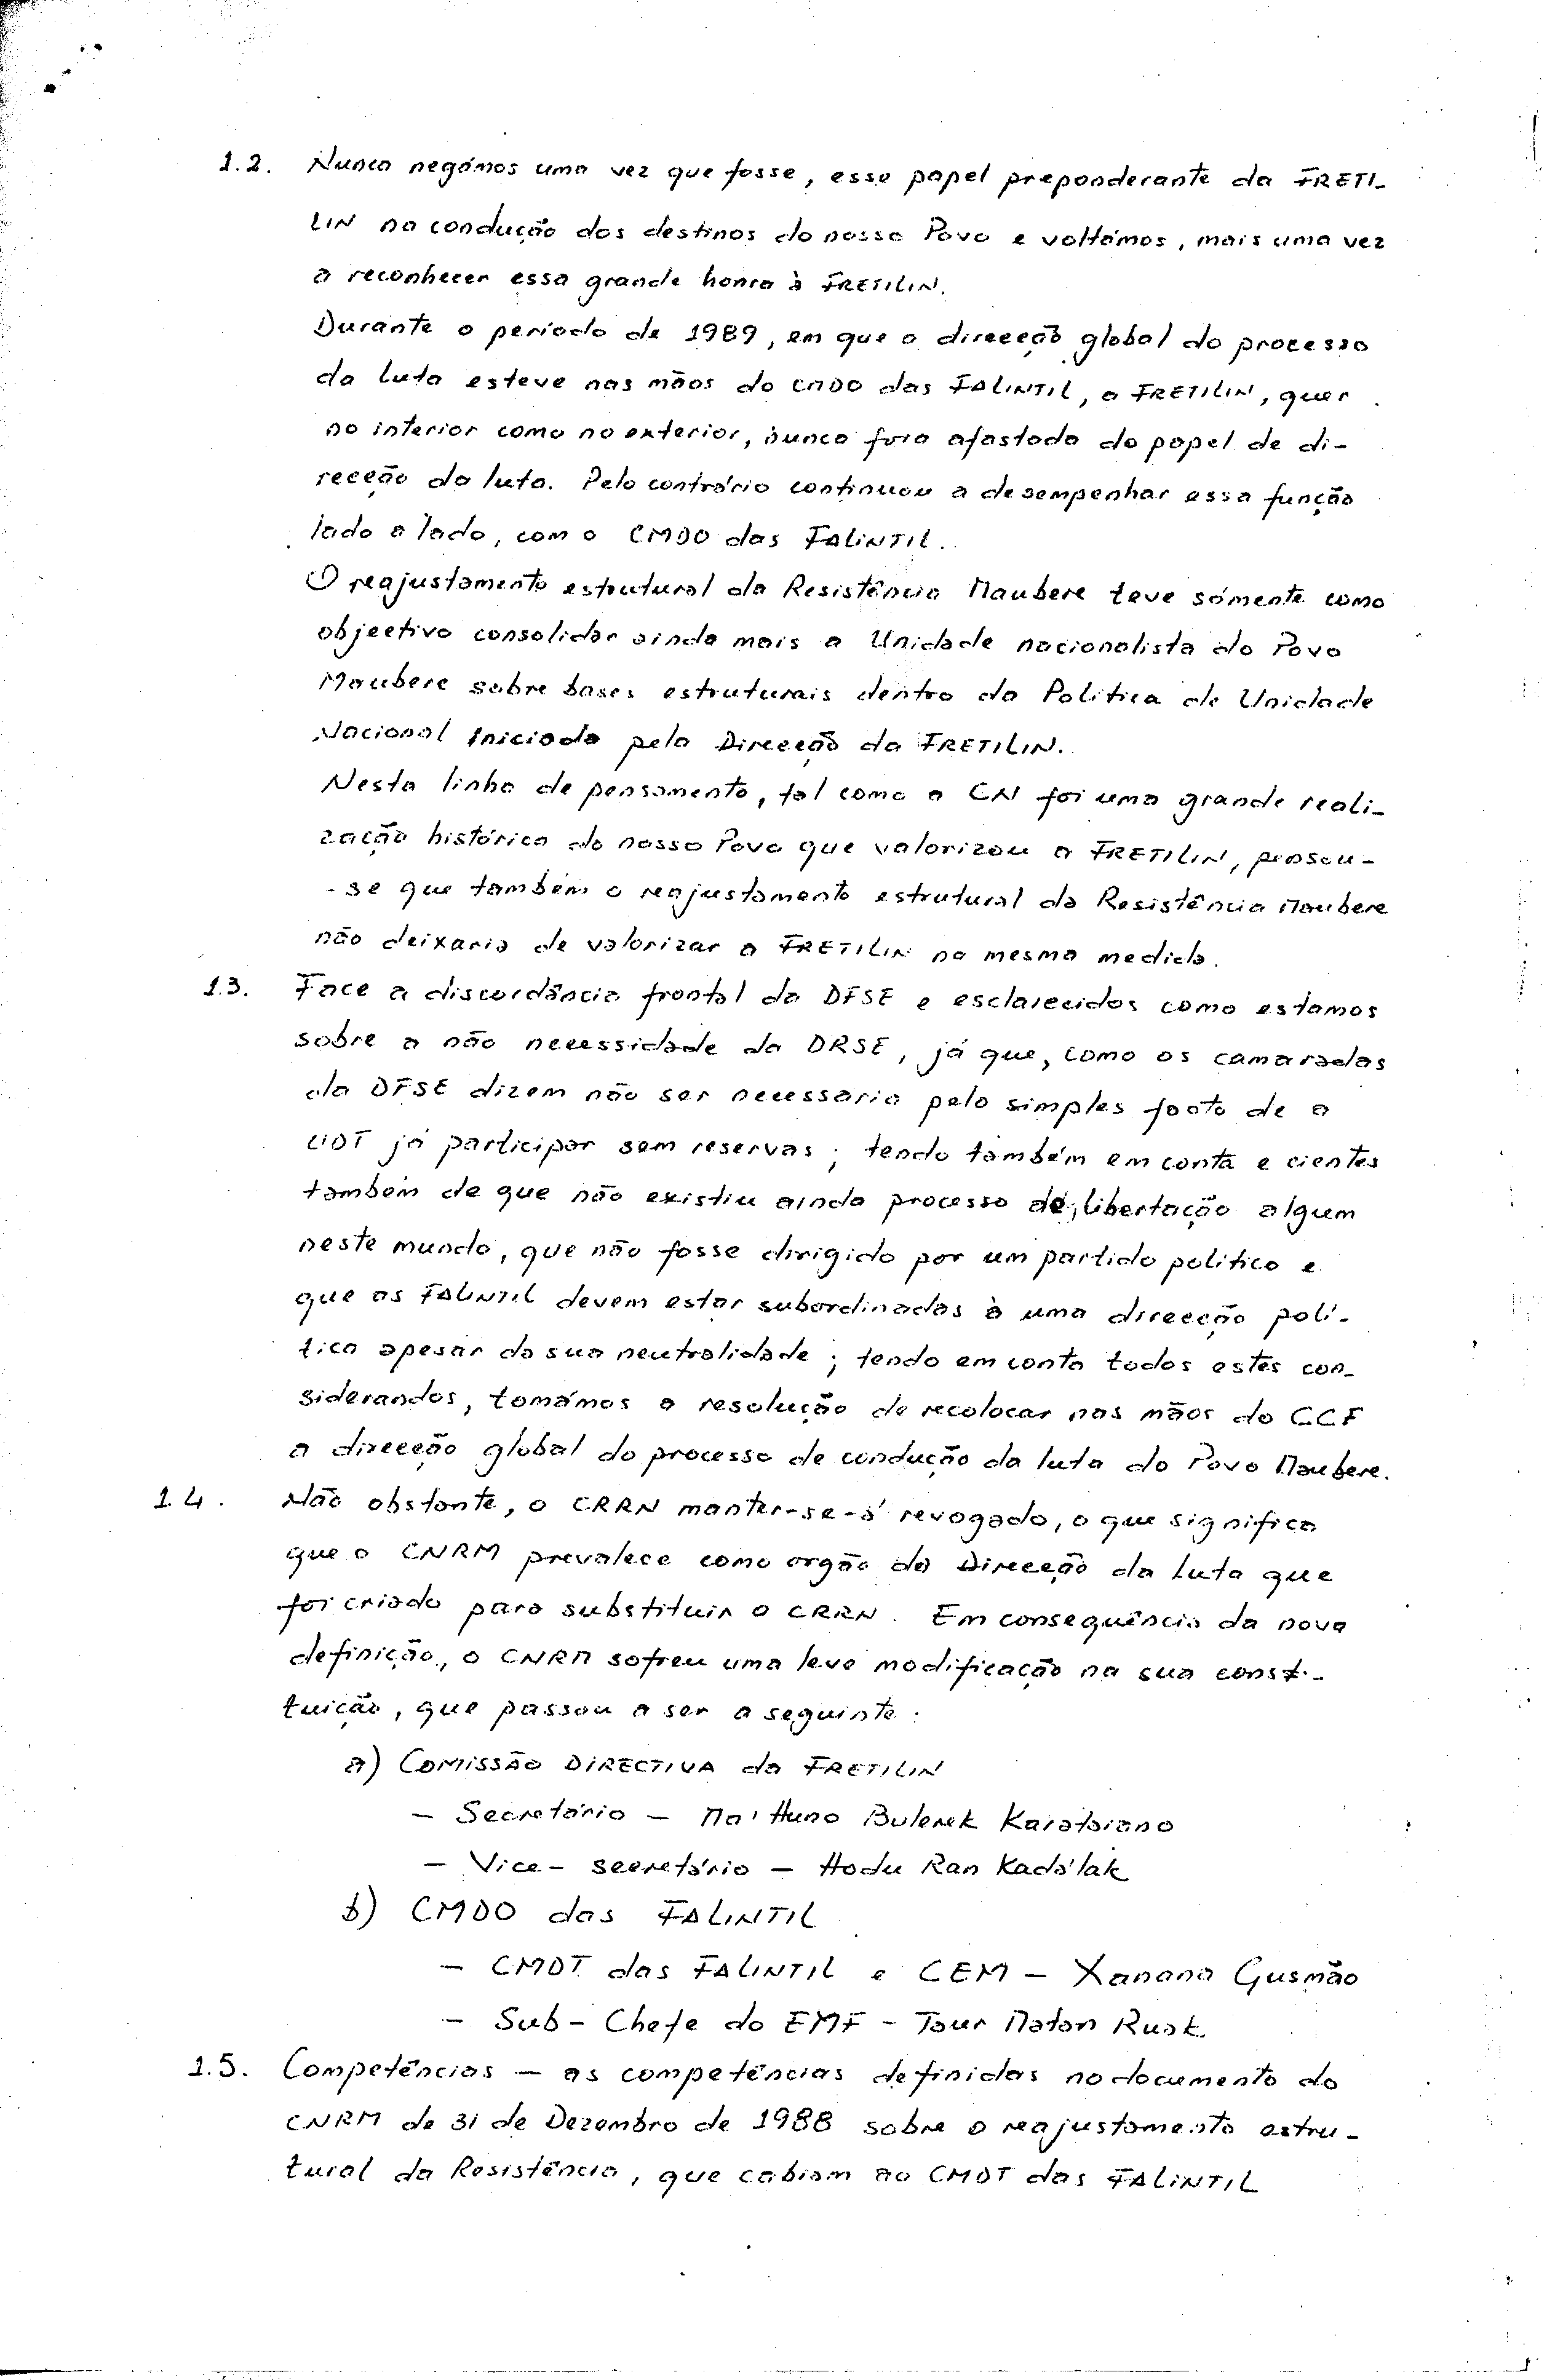 1.2. Nunca negámos uma vez que fosse, esse papel preponderante da FRETI-
LIN na condução dos destinos do nosso Povo e voltámos, mais uma vez
a reconhecer essa grande honra à FRETILIN.
Durante o período de 1989, em que a direcção global do processo
da luta esteve nas mãos do CMDO das FALINTIL, a FRETILIN, quer
no interior como no exterior, nunca fora afastada do papel de di-
recção da luta. Pelo contrário continuou a desempenhar essa função
lado a lado, com o CMDO das FALINTIL.
O reajustamento estrutural da Resistência Maubere teve sómente como
objectivo consolidar ainda mais a Unidade nacionalista do Povo
Maubere sobre bases estruturais dentro da Política de Unidade
Nacional iniciada pela Direcção da FRETILIN.
Nesta linha de pensamento, tal como a CN foi uma grande reali-
zação histórica do nosso Povo que valorizou a FRETILIN, pensou-
-se que também o reajustamento estrutural da Resistência Maubere
não deixaria de valorizar a FRETILIN na mesma medida.
1.3. Face a discordância frontal da DFSE e esclarecidos como estamos
sobre a não necessidade da DRSE, já que, como os camaradas
da DFSE dizem não ser necessaria pelo simples facto de a
UDT já participar sem reservas; tendo também em conta e cientes
também de que não existiu ainda processo de libertação algum
neste mundo, que não fosse dirigido por um partido político e
que as FALINTIL devem estar subordinadas à uma direcção polí-
tica apesar da sua neutralidade; tendo em conta todos estes con-
siderandos, tomámos a resolução de recolocar nas mãos do CCF
a direcção global do processo de condução da luta do Povo Maubere.
1.4. Não obstante, o CRRN manter-se-á revogado, o que significa
que o CNRM prevalece como orgão da Direcção da Luta que
foi criado para substituir o CRRN. Em consequência da nova
definição, o CNRM sofreu uma leve modificação na sua consti-
tuição, que passou a ser a seguinte:
a) COMISSÃO DIRECTIVA da FRETILIN
- Secretário - Ma'Huno Bulerek Karataiano
- Vice-secretário - Hodu Ran Kadálak
b) CMDO das FALINTIL
- CMDT das FALINTIL e CEM - Xanana Gusmão
- Sub-Chefe do EMF - Taur Matan Ruak
1.5. Competências - as competências definidas no documento do
CNRM de 31 de Dezembro de 1988 sobre o reajustamento estru-
tural da Resistência, que cabiam ao CMDT das FALINTIL